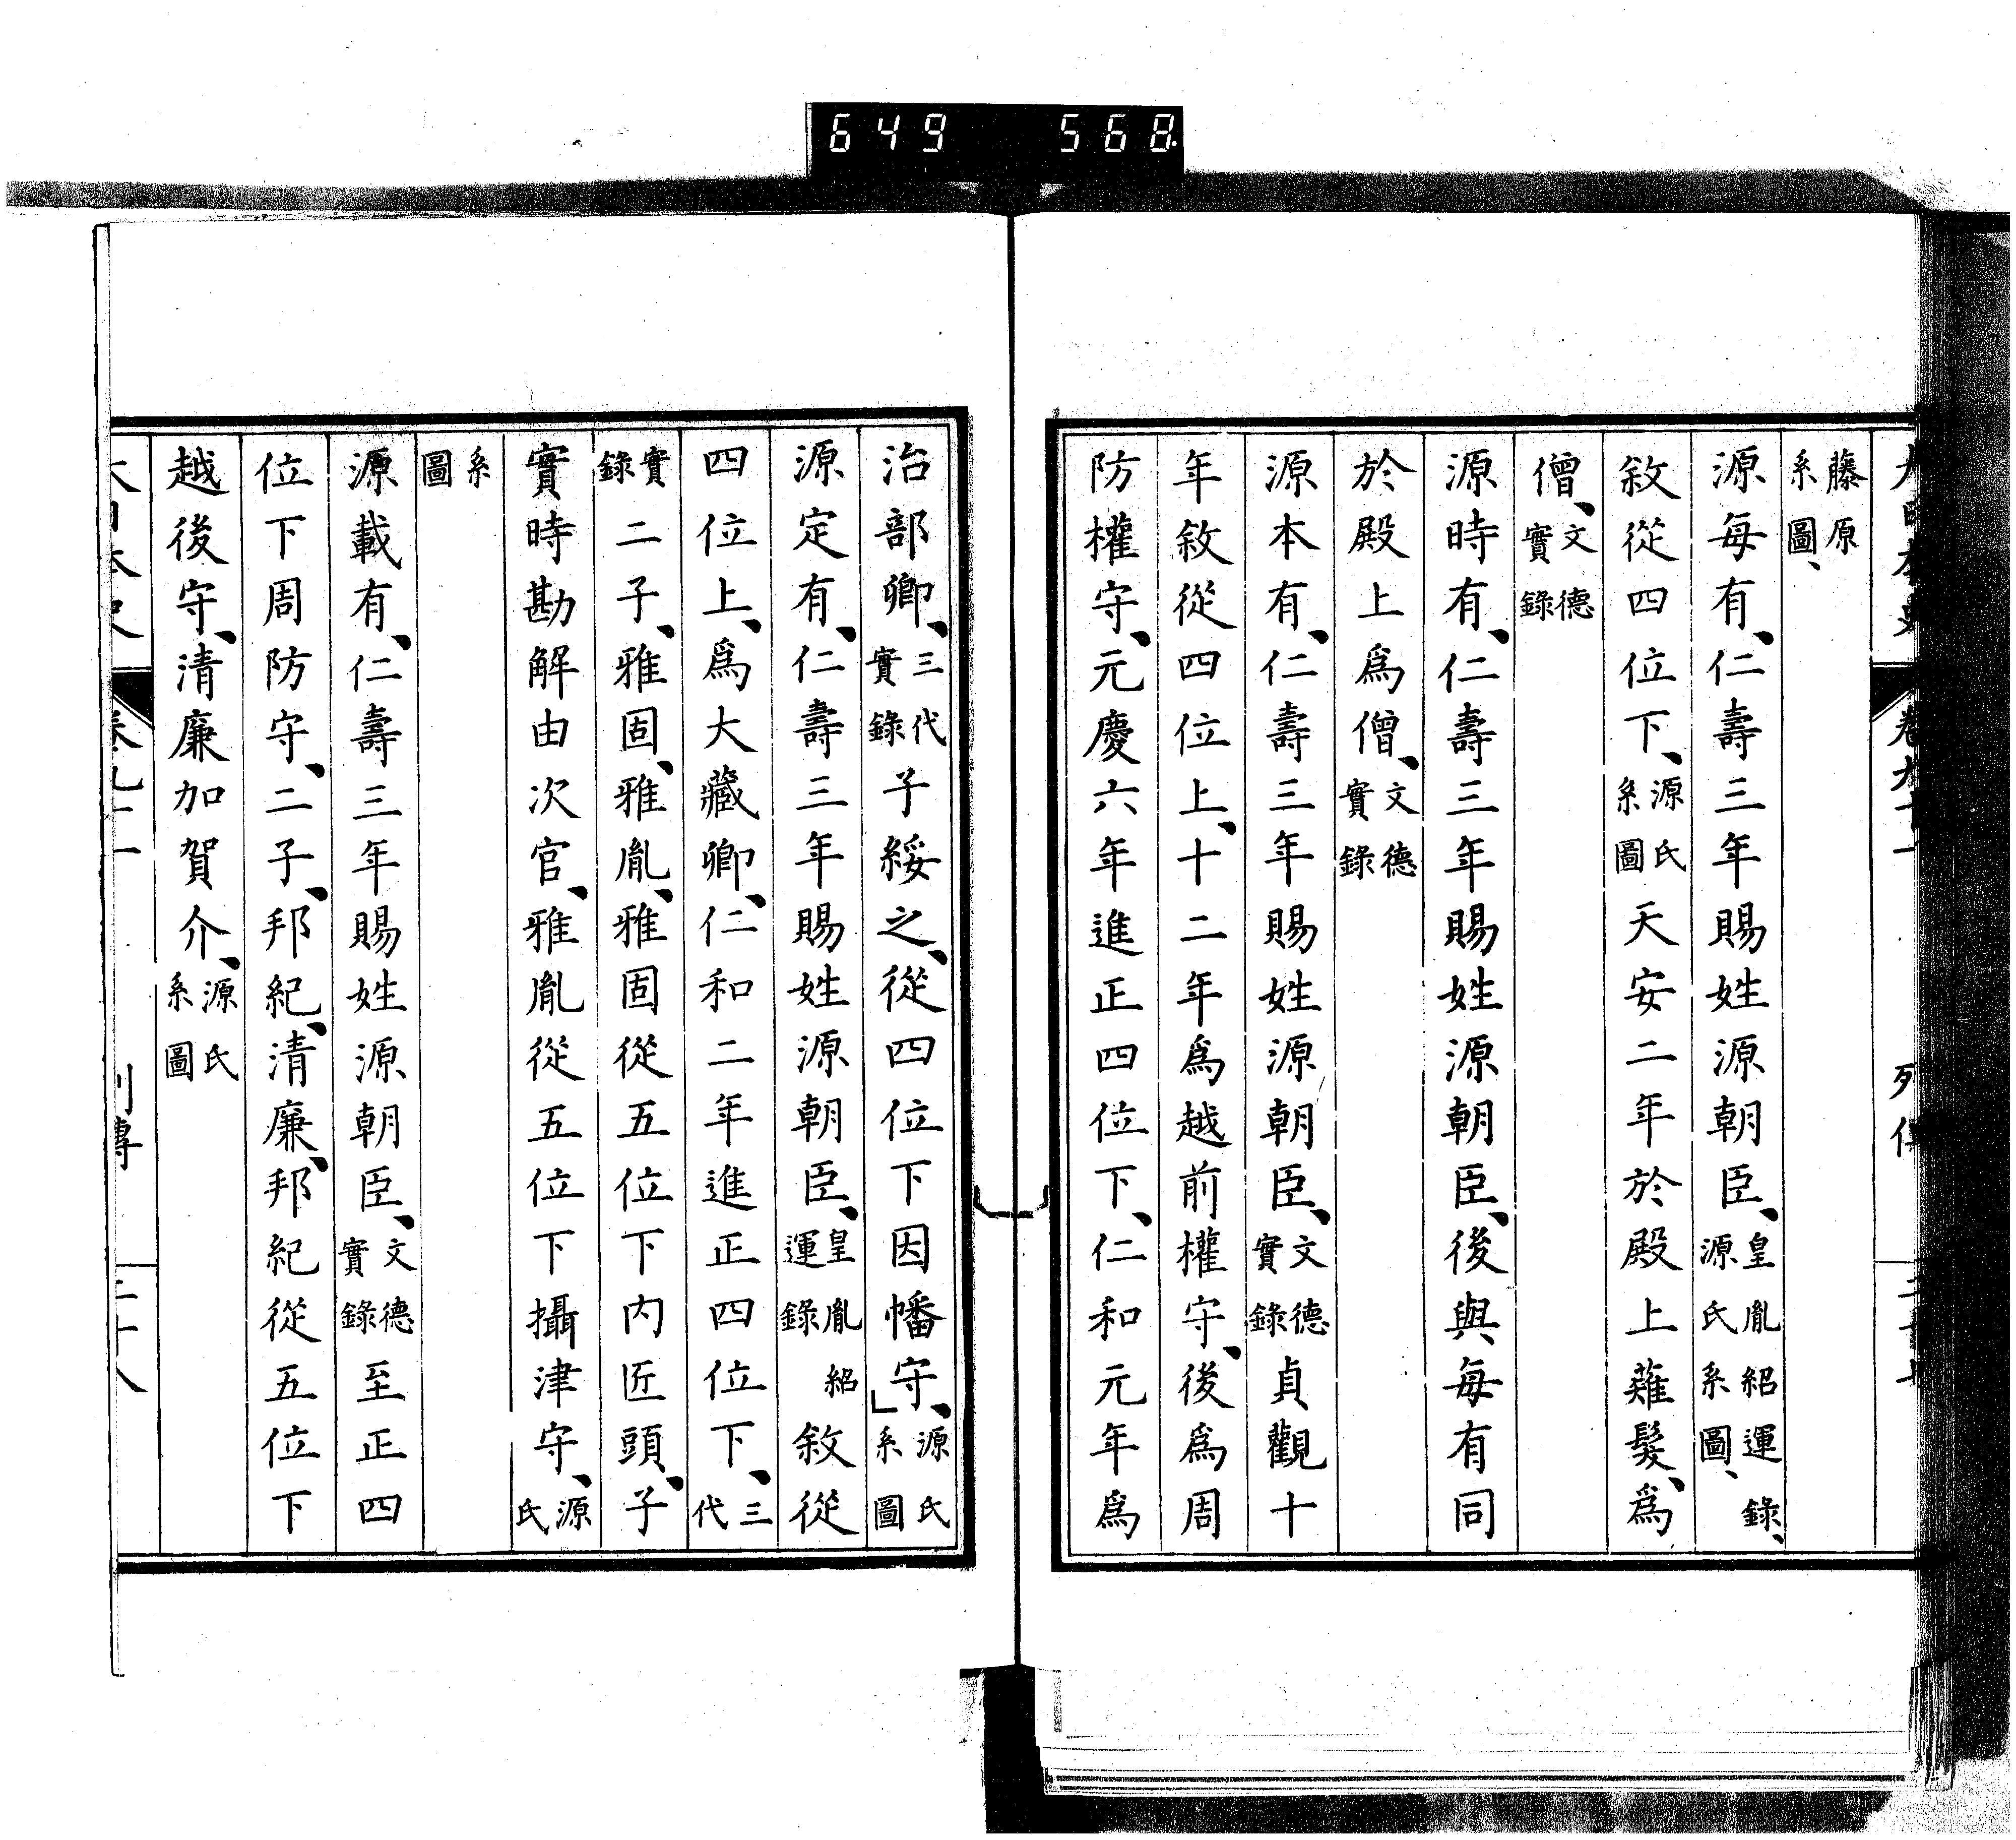 649 568
藤原系圖、
源每有、仁壽三年賜姓源朝臣、皇胤紹運錄、源氏系圖、
敘從四位下、源氏系圖天安二年於殿上薙髮、爲
僧、文德實錄
源時有、仁壽三年賜姓源朝臣、後與每有同
於殿上爲僧、文德實錄
源本有、仁壽三年賜姓源朝臣、文德實錄貞觀十
年敘從四位上、十二年爲越前權守、後爲周
防權守、元慶六年進正四位下、仁和元年爲
治部卿、三代實錄子綏之、從四位下因幡守、源氏系圖
源定有、仁壽三年賜姓源朝臣、皇胤紹運錄敘從
四位上、爲大藏卿、仁和二年進正四位下、三代
實錄二子、雅固、雅胤、雅固從五位下內匠頭、子
實時勘解由次官、雅胤從五位下攝津守、源氏
系圖
源載有、仁壽三年賜姓源朝臣、文德實錄至正四
位下周防守、二子、邦紀、清廉、邦紀從五位下
越後守、清廉加賀介、源氏系圖